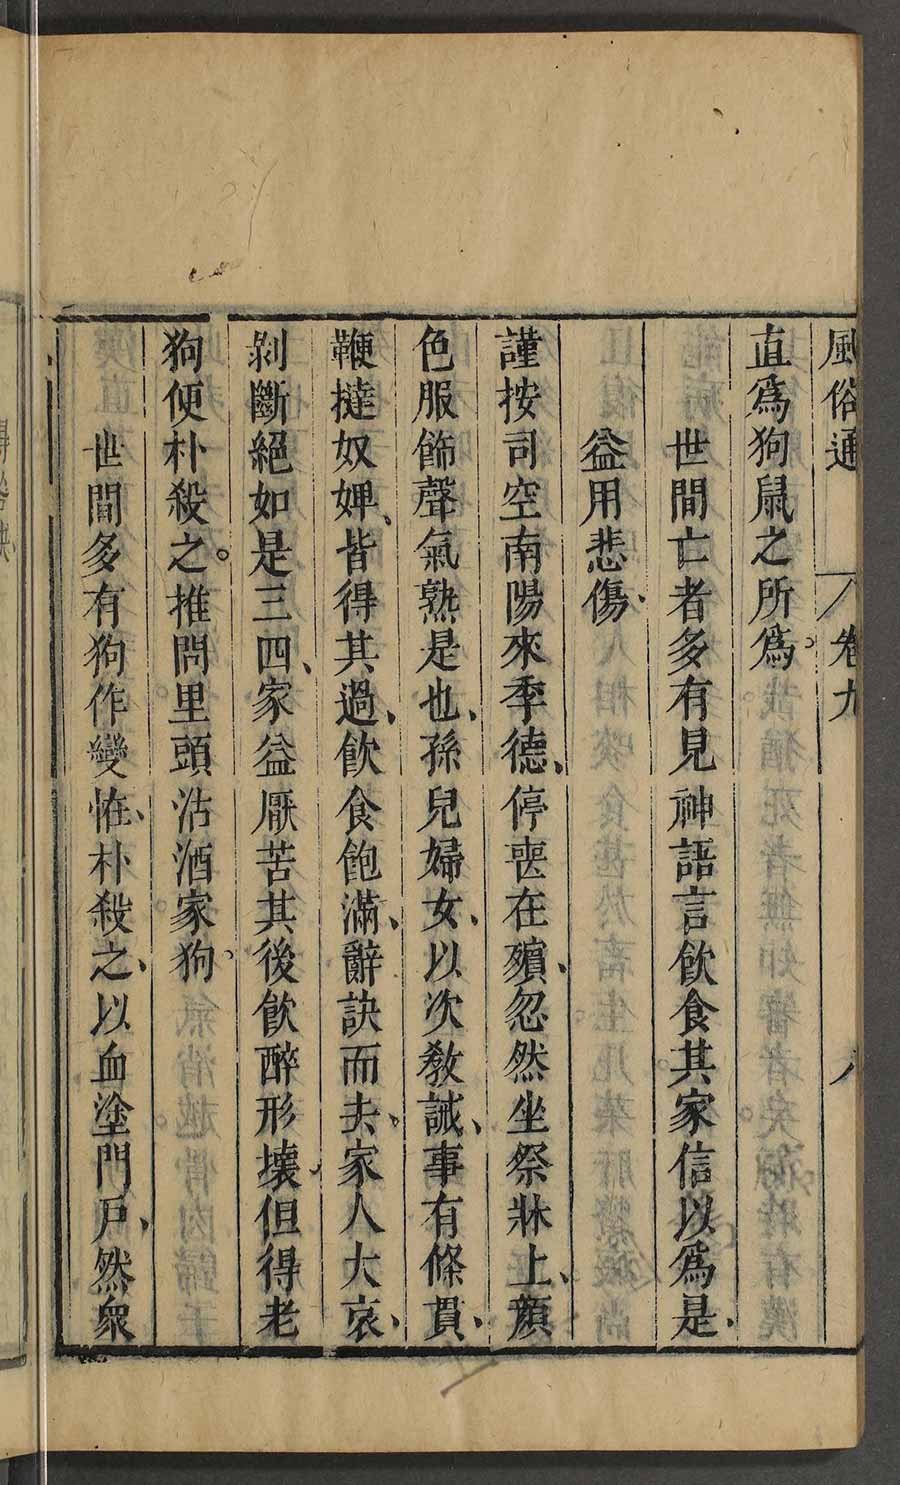 風俗通 卷九 八
直爲狗鼠之所爲。
世間亡者多有見神語言飲食其家信以爲是、
益用悲傷、
謹按司空南陽來季德、停喪在殯、忽然坐祭牀上、顏
色服飾聲氣熟是也、孫兒婦女、以次教誡、事有條貫、
鞭撻奴婢、皆得其過、飲食飽滿、辭訣而去、家人大哀、
剝斷絕如是三四、家益厭苦其後飲醉形壞、但得老
狗便朴殺之。推問里頭沽酒家狗、
世間多有狗作變怪、朴殺之、以血塗門戶、然衆